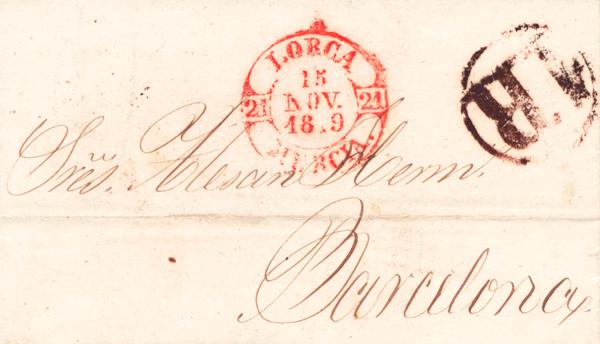 LORCA
15
NOV.
21 18 9 21
MURCIA.
1R
Sres. Alesan Herm.
Barcelona.